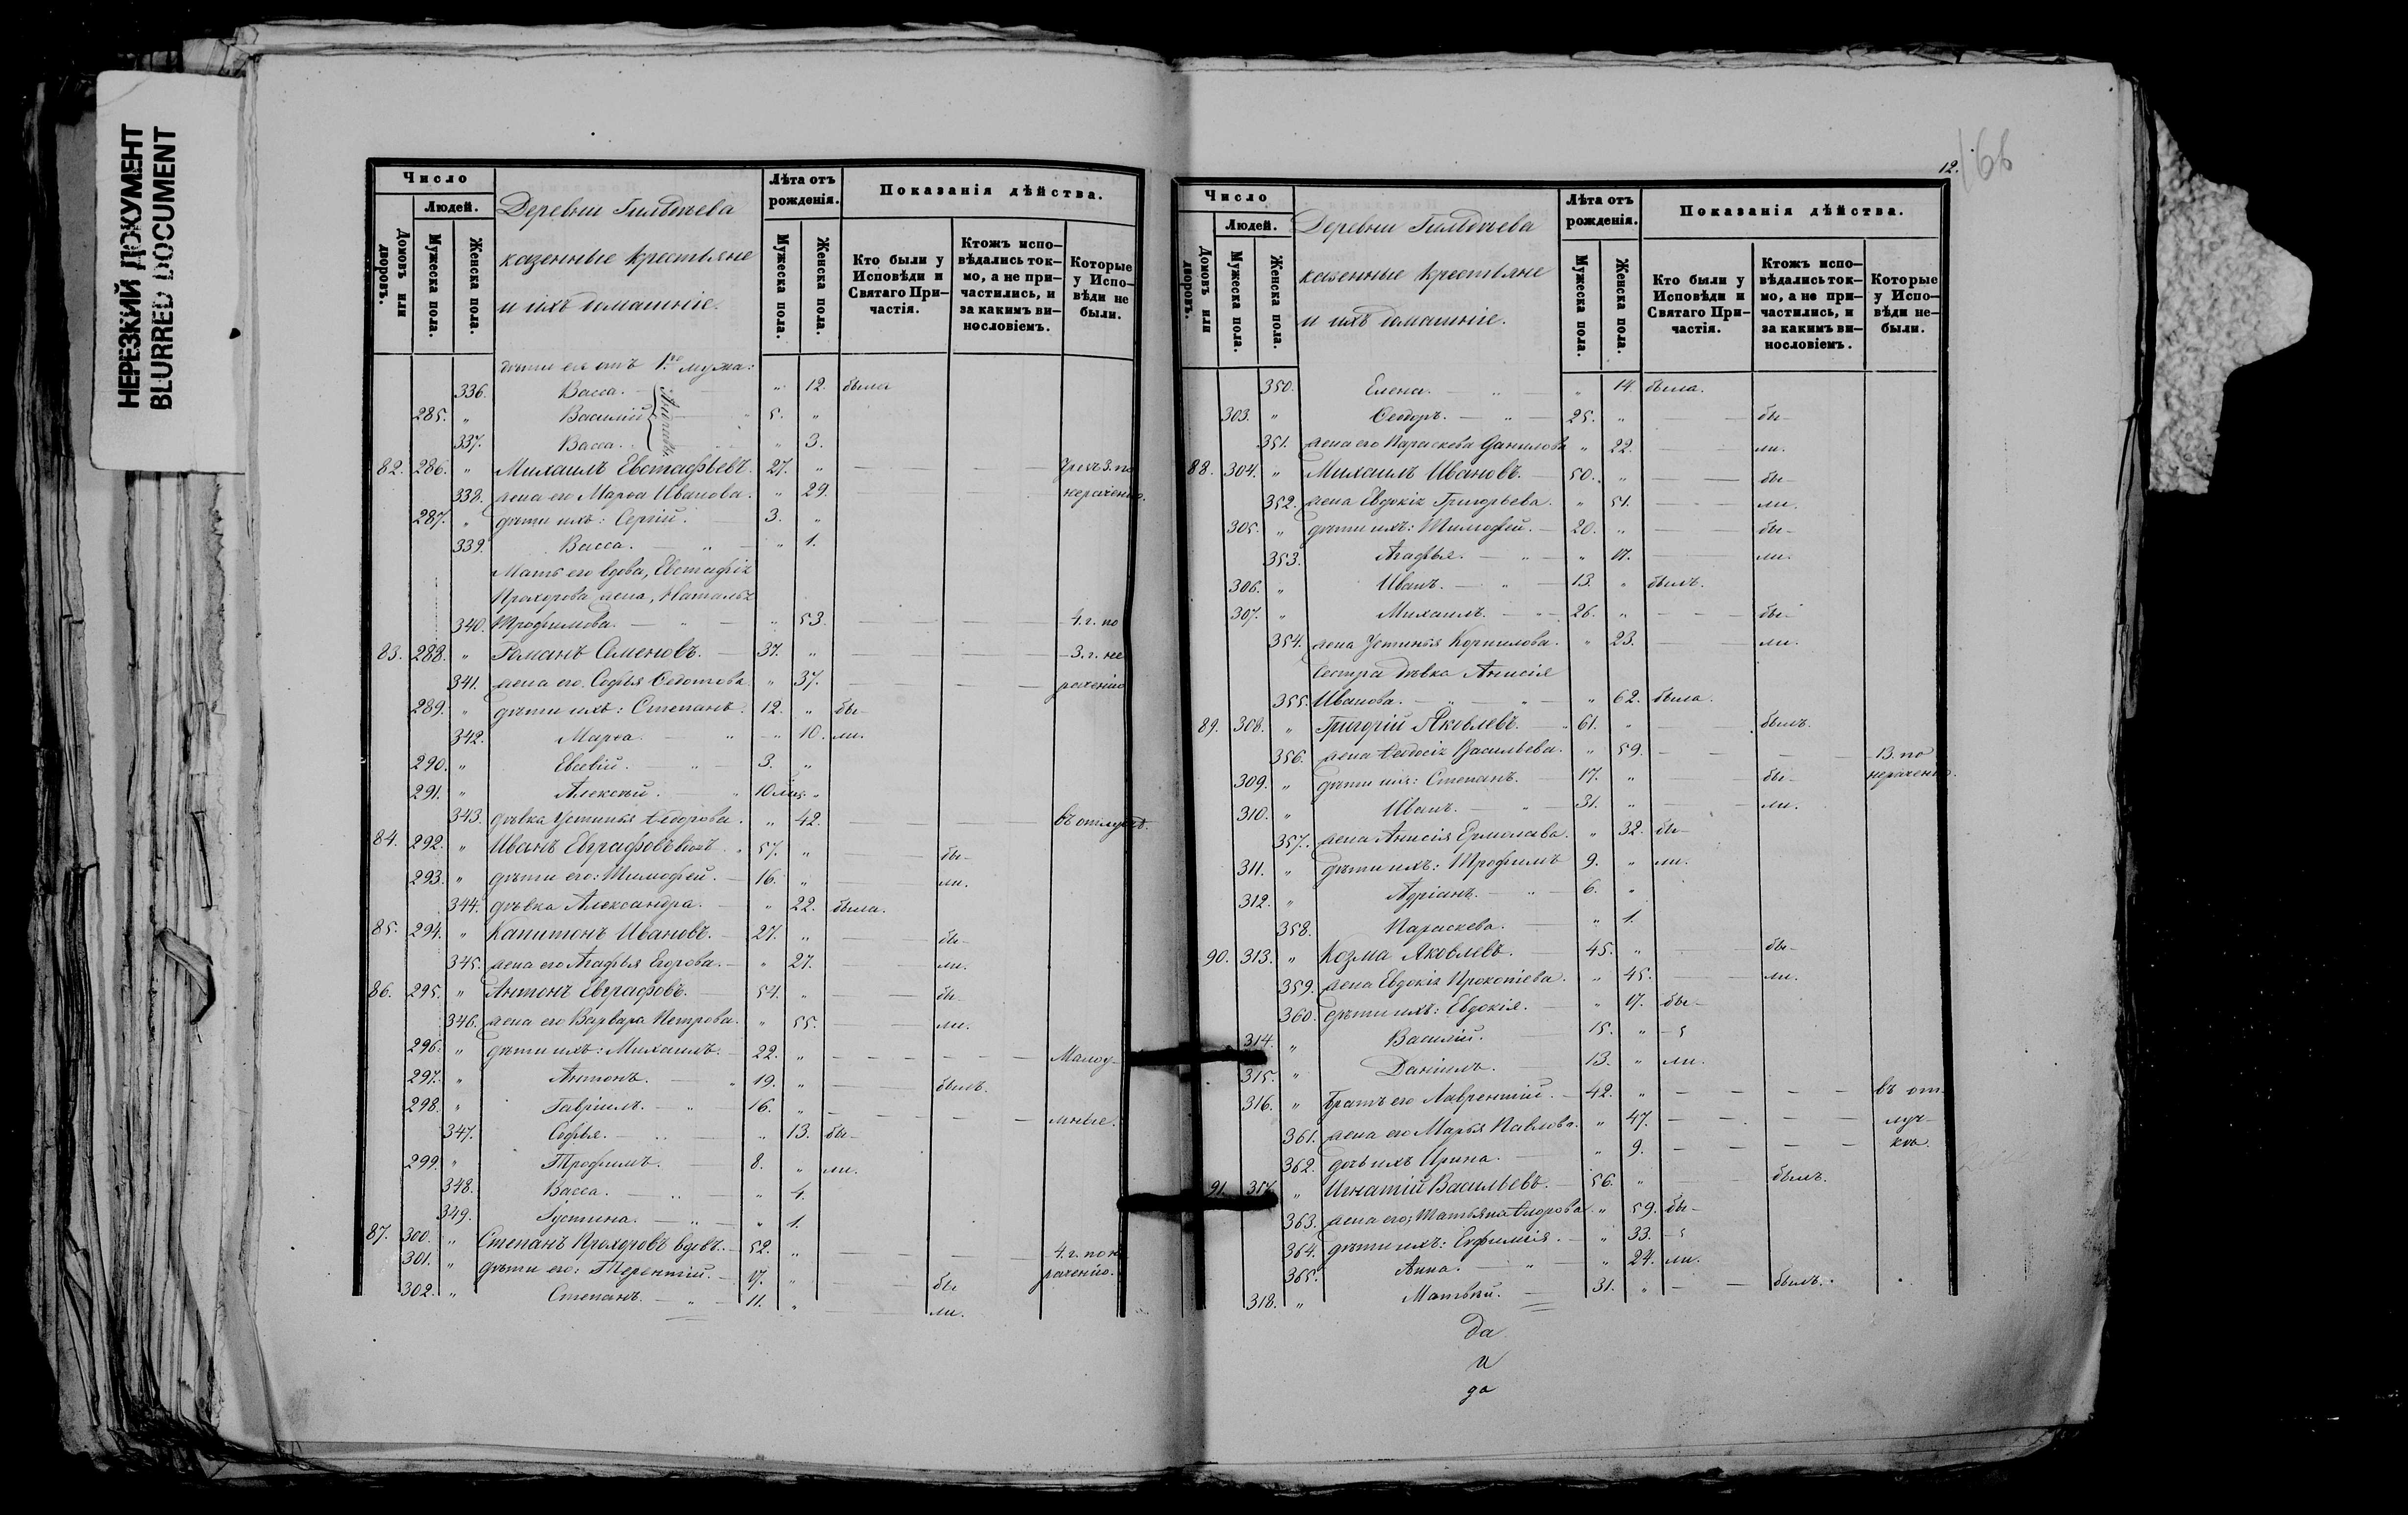 НЕРЕЗКИЙ ДОКУМЕНТ
BLURRED DOCUMENT
Число
Людей.
Домовъ или дворовъ.
Мужеска пола.
Женска пола.
Деревни
казенные крестьяне
и ихъ домашніе.
Лѣта отъ рожденія.
Мужеска пола.
Женска пола.
Показанія дѣйства.
Кто были у Исповѣди и Святаго При-частія.
Ктожъ испо-вѣдались ток-мо, а не при-частились, и за какимъ ви-нословіемъ.
Которые у Испо-вѣди не были.
дѣти ея отъ 1го мужа:
336. Васса. " 12. была
285. " Василій 5. "
337. Васса. " 3.
82. 286. " Михаилъ Евстафьевъ. 27. " — — 3. по
338. жена его Марѳа Иванова. " 29. нераченію.
287. " дѣти ихъ: Сергій. 3. "
339. Васса. " 1.
Мать его вдова, Евстафія
Прохорова жена, Наталья
340. Трофимова. " 53. — — 4. г. по
83. 288. " Романъ Семеновъ. 37. " — — 3. г. не
341. жена его Софья Ѳедотова " 37. — — раченію
289. " дѣти ихъ: Степанъ. 12. " бы-
342. Марѳа. " 10. ли.
290. " Евсевій. 3. "
291. " Алексѣй. 10 "
343. дѣвка Устинья Ѳедорова. " 42. — — въ отлучкѣ.
84. 292. " Иванъ Евграфовъ вдовъ. 57. " — бы-
293. " дѣти его: Тимофей. 16. " — ли.
344. дѣвка Александра. " 22. была.
85. 294. " Капитонъ Ивановъ. 27. " — бы-
345. жена его Агафья Егорова. " 27. — ли.
86. 295. " Антонъ Евграфовъ. 54. " — бы-
346. жена его Варвара Петрова. " 55. — ли.
296. " дѣти ихъ: Михаилъ. 22. " — — Малоу-
297. " Антонъ. 19. " — былъ.
298. " Гавріилъ. 16. " — — мные.
347. Софья. " 13. бы-
299. " Трофимъ. 8. " ли.
348. Васса. " 4.
349. Іустина. " 1.
87. 300. " Степанъ Прохоровъ вдовъ. 52. " — — 4. г. по не
301. " дѣти его: Терентій. 17. " — бы раченію.
302. " Степанъ. 11. " — ли.
12.
166
Число
Людей.
Домовъ или дворовъ.
Мужеска пола.
Женска пола.
Деревни
казенные крестьяне
и ихъ домашніе.
Лѣта отъ рожденія.
Мужеска пола.
Женска пола.
Показанія дѣйства.
Кто были у Исповѣди и Святаго При-частія.
Ктожъ испо-вѣдались ток-мо, а не при-частились, и за какимъ ви-нословіемъ.
Которые у Испо-вѣди не-были.
350. Елена. " 14. была.
303. " Ѳеодоръ. 25. " — бы-
351. жена его Параскева Данилова " 22. — ли.
88. 304. " Михаилъ Ивановъ. 50. " — бы-
352. жена Евдокія Григорьева. " 51. — ли.
305. " дѣти ихъ: Тимофей. 20. " — бы-
353. Агафья. " 17. — ли.
306. " Иванъ. 13. " былъ.
307. " Михаилъ. 26. " — бы-
354. жена Устинья Корнилова. " 23. — ли.
Сестра дѣвка Анисія
355. Иванова. " 62. была.
89. 308. " Григорій Яковлевъ. 61. " былъ.
356. жена Ѳеодосія Васильева. " 59. — — 13. по
309. " дѣти ихъ: Степанъ. 17. " — бы- нераченію.
310. " Иванъ. 31. " — ли.
357. жена Анисія Ермолаева. " 32. бы-
311. " дѣти ихъ: Трофимъ 9. " ли.
312. " Адріанъ. 6. "
358. Параскева. " 1.
90. 313. " Козма Яковлевъ. 45. " — бы-
359. жена Евдокія Прокопіева. " 45. — ли.
360. дѣти ихъ: Евдокія. " 17. бы-
314. " Василій. 15. "
315. " Даніилъ. 13. " ли.
316. " братъ его Лаврентій. 42. " — — въ от-
361. жена его Марья Павлова. " 47. — — луч-
362. дочь ихъ Ирина. " 9. — — кѣ.
91. 317. " Игнатій Васильевъ. 56. " былъ.
363. жена его, Татьяна " 59. бы-
364. дѣти ихъ: Евфимія. " 33.
365. Анна. " 24. ли.
318. " Матвѣй. 31. " — былъ.
Да
и
да